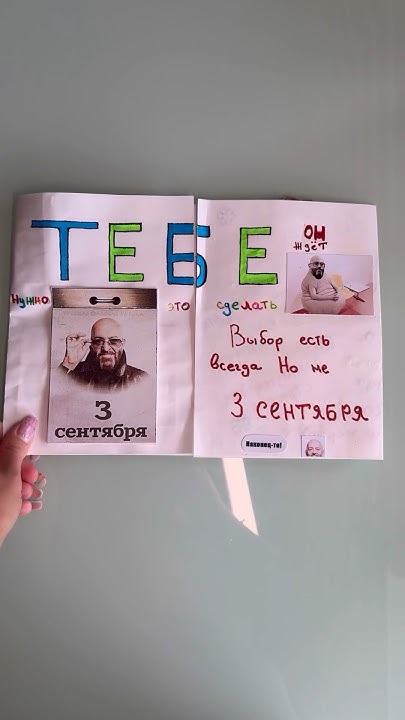 ТЕБЕ
Нужно это сделать
3
сентября
ОН
ждёт
Выбор есть
всегда Но не
3 сентября
Наконец-то!